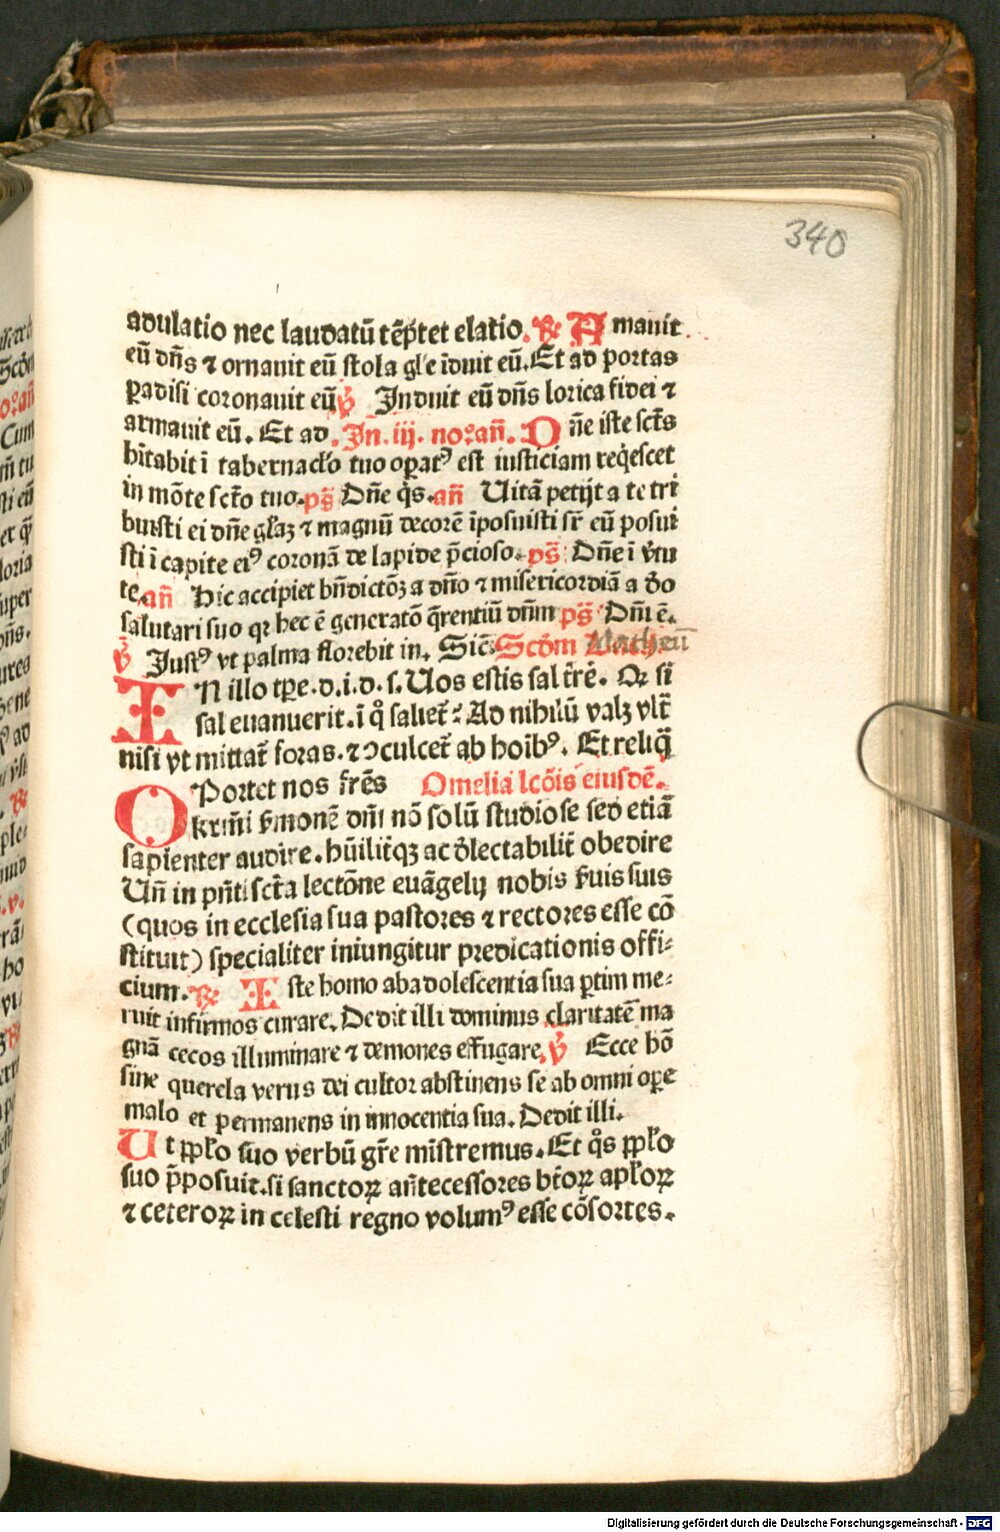 340
adulatio nec laudatū tēptet elatio. ℟ Amauit
eū dñs ⁊ ornauit eū stola gl'e īduit eū. Et ad portas
ꝑadisi coronauit eū ℣ Induit eū dñs lorica fidei ⁊
armauit eū. Et ad. In. iij. no. añ. Dñe iste sct̄s
hītabit ī tabernacl'o tuo oꝑatꝰ est iusticiam reqͥescet
in mōte sct̄o tuo. ps̄ Dñe qͥs. añ Uitā petijt a te tri
buisti ei dñe gl'aꝫ ⁊ magnū decorē īposuisti sr̄ eū posui
sti ī capite eiꝰ coronā de lapide p̄cioso. ps̄ Dñe ī v̄tu
te. añ Hic accipiet bñdictōꝫ a dño ⁊ misericordiā a d̄o
salutari suo qꝛ hec ē generatō q̄rentiū dñm ps̄ Dñi ē.
℣ Justꝰ vt palma florebit in. Sic̄. Scd̄m Matheū
IN illo tp̄e. d. i. d. s. Uos estis sal tr̄e. Qꝛ si
sal euanuerit. ī qͦ saliet̄ : Ad nihilū valꝫ vlt̄
nisi vt mittat̄ foras. ⁊ ꝯculcet̄ ab hoībꝰ. Et reliq̄
OPortet nos fr̄es Omelia lcōis eiusdē.
kr̄mi s̄monē dñi nō solū studiose sed etiā
sapienter audire. hūilit̄qꝫ ac d̄lectabilit̄ obedire
Uñ in pñti sct̄a lectōne euāgelij nobis s̄uis suis
(quos in ecclesia sua pastores ⁊ rectores esse cō
stituit) specialiter iniungitur predicationis offi⸗
cium. ℟ Iste homo ab adolescentia sua ꝑtim me⸗
ruit infirmos curare. Dedit illi dominus claritatē ma
gnā cecos illuminare ⁊ demones effugare. ℣ Ecce hō
sine querela verus dei cultor abstinens se ab omni oꝑe
malo et permanens in innocentia sua. Dedit illi.
Ut ppl'o suo verbū gr̄e mīstremus. Et qͦs ppl'o
suo p̄posuit. si sanctoꝝ añtecessores bt̄oꝝ apl'oꝝ
⁊ ceteroꝝ in celesti regno volumꝰ esse cōsortes.
Digitalisierung gefördert durch die Deutsche Forschungsgemeinschaft - DFG